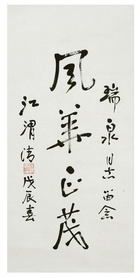 瑞泉同志留念
風華正茂
江渭清
戊辰春